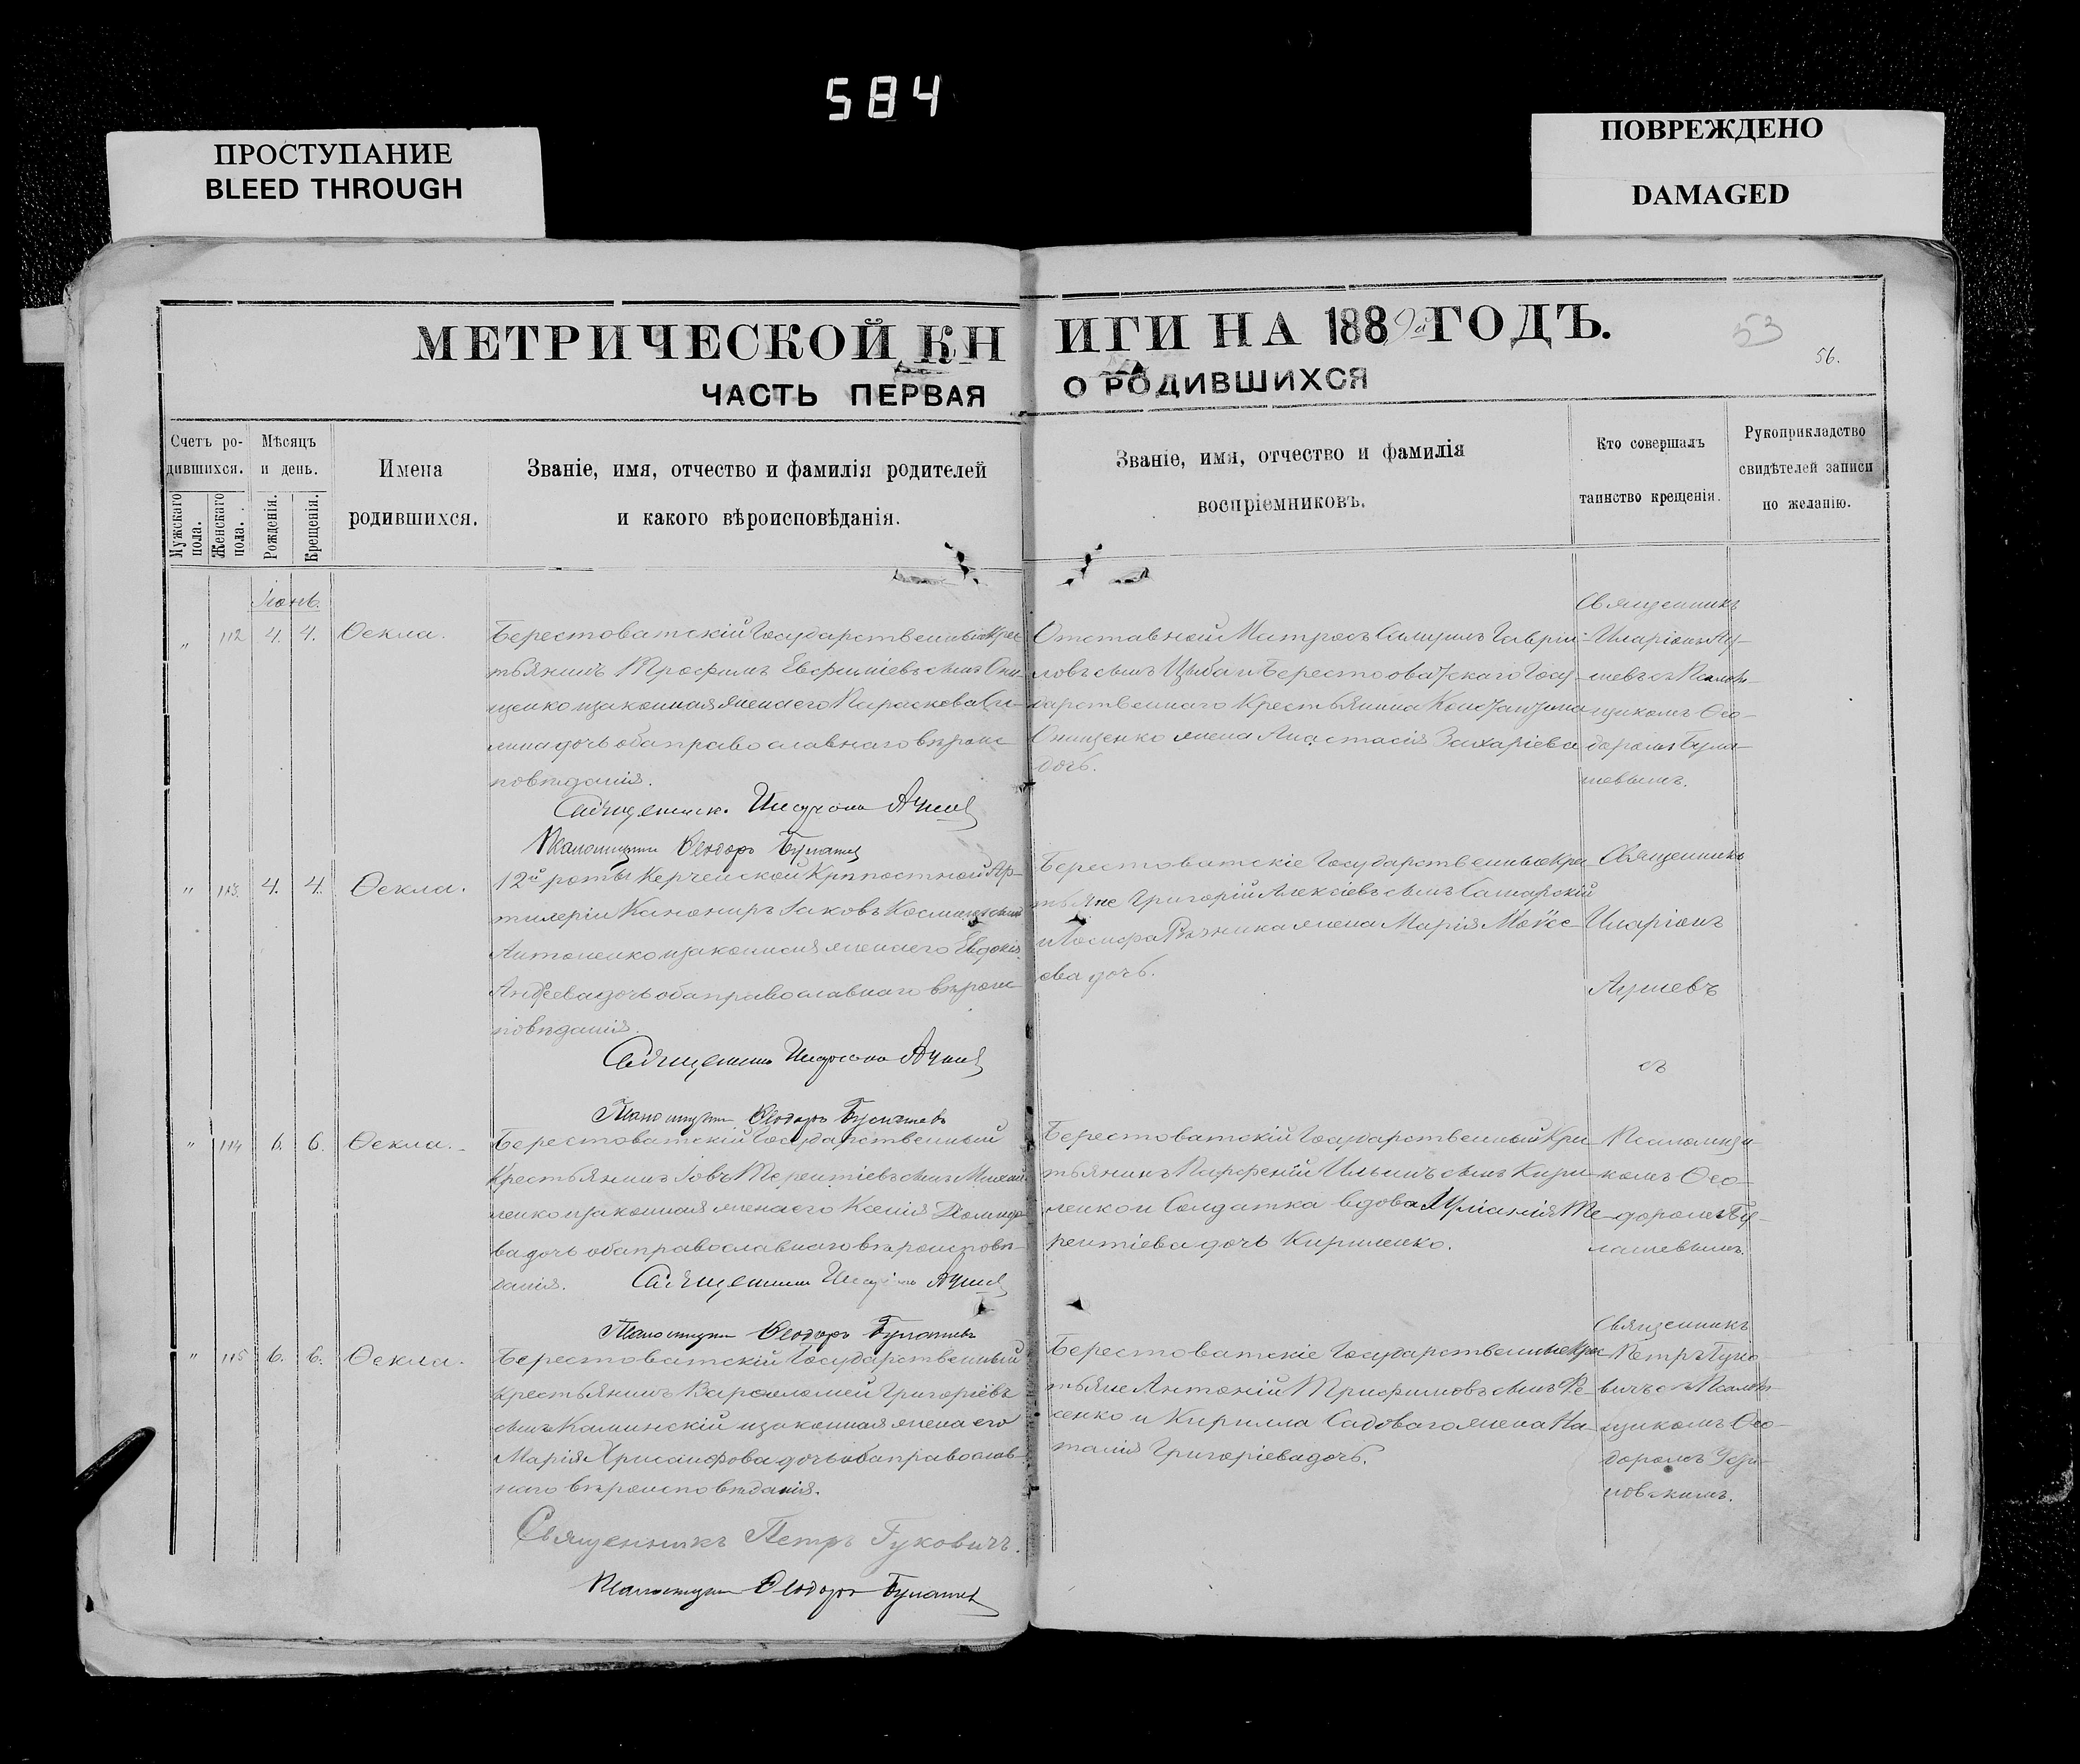 584
ПРОСТУПАНИЕ
BLEED THROUGH
ПОВРЕЖДЕНО
DAMAGED
МЕТРИЧЕСКОЙ КНИГИ НА 1889й ГОДЪ.
53
56.
ЧАСТЬ ПЕРВАЯ О РОДИВШИХСЯ
Счетъ ро-
дившихся.
Мужскаго
пола.
Женскаго
пола.
Мѣсяцъ
и день.
Рожденія.
Крещенія.
Имена
родившихся.
Званіе, имя, отчество и фамилія родителей
и какого вѣроисповѣданія.
Званіе, имя, отчество и фамилія
воспріемниковъ.
Кто совершалъ
таинство крещенія.
Рукоприкладство
свидѣтелей записи
по желанію.
Іюнь.
" 112 4. 4. Ѳекла.
Берестоватскій Государственный Крес
тьянинъ Трофимъ Евфиміевъ сынъ Они-
щенко и законная жена его Параскева
дочь оба православнаго вѣроис
повѣданія.
Священникъ
Псаломщикъ Ѳеодоръ Булашевъ
Отставной Матросъ Самуилъ Гаврiи-
ловъ сынъ Цыба и Берестоватскаго Госу-
дарственнаго Крестьянина Константина
Онищенко жена Анастасія Захаріева
дочь.
Священникъ
Иларіонъ
съ Псалом-
щикомъ Ѳео-
доромъ Була-
шевымъ.
" 113. 4. 4. Ѳекла.
12й роты Керченской Крѣпостной Ар-
тилеріи Канониръ Іаковъ Косминъ сынъ
Антоненко и законная жена его Евдокія
Андреева дочь оба православнаго вѣроис
повѣданія.
Священникъ
Псаломщикъ Ѳеодоръ Булашевъ
Берестоватскіе Государственные Крес
тьяне Григорій Алексіевъ сынъ Самарскій
и Іосифа Рѣзника жена Марія Моѵсе-
ева дочь.
Священникъ
Иларіонъ
съ
" 114 6. 6. Ѳекла.
Берестоватскій Государственный
Крестьянинъ Іовъ Терентіевъ сынъ
и законная жена его Ксенія
дочь оба православнаго вѣроисповѣ-
данія. Священникъ
Псаломщикъ Ѳеодоръ Булашевъ
Берестоватскій Государственный Крес
тьянинъ Парфеній Ильинъ сынъ Кири-
ленко и Солдатка вдова Іуліанія Те-
рентіева дочь Кириленко.
Псаломщи-
комъ Ѳео-
доромъ Бу-
лашевымъ.
" 115 6. 6. Ѳекла.
Берестоватскій Государственный
Крестьянинъ Варѳоломей Григоріевъ
сынъ Каминскій и законная жена его
Марія Хрисанфова дочь оба православ-
наго вѣроисповѣданія.
Священникъ Петръ Гуковичъ.
Псаломщикъ Ѳеодоръ Булашевъ
Берестоватскіе Государственные Крес
тьяне Антоній Трифимовъ сынъ
и Кирилла Садоваго жена На-
талія Григоріева дочь.
Священникъ
Петръ Гуко-
вичъ съ Псалом-
щикомъ Ѳео-
доромъ